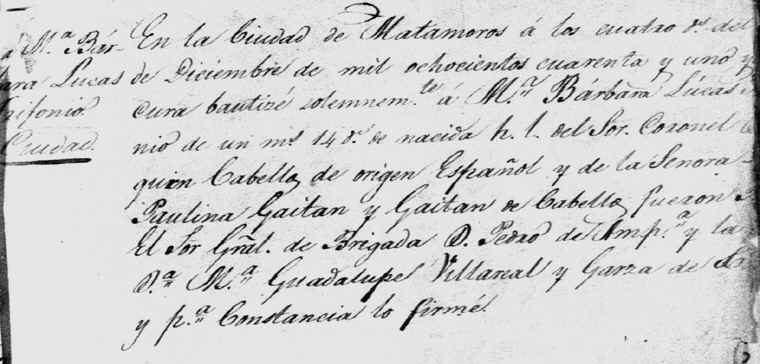 Mª Bár-
ara Lucas
rifonio.
Ciudad.
En la Ciudad de Matamoros á los cuatro ds. del
de Diciembre de mil ochocientos cuarenta y uno y
cura bautizé solemnem.te á M.ª Bárbara Lúcas
nio de un ms. 14 ds. de nacida h. l. del Sor. Coronel
quin Cabello de origen Español y de la Senora
Paulina Gaitan y Gaitan de Cabello, fueron
El Sor Gral. de Brigada D. Pedro de Amp.ª y la
D.ª M.ª Guadalupe Villareal y Garza de
y p.ª Constancia lo firmé.